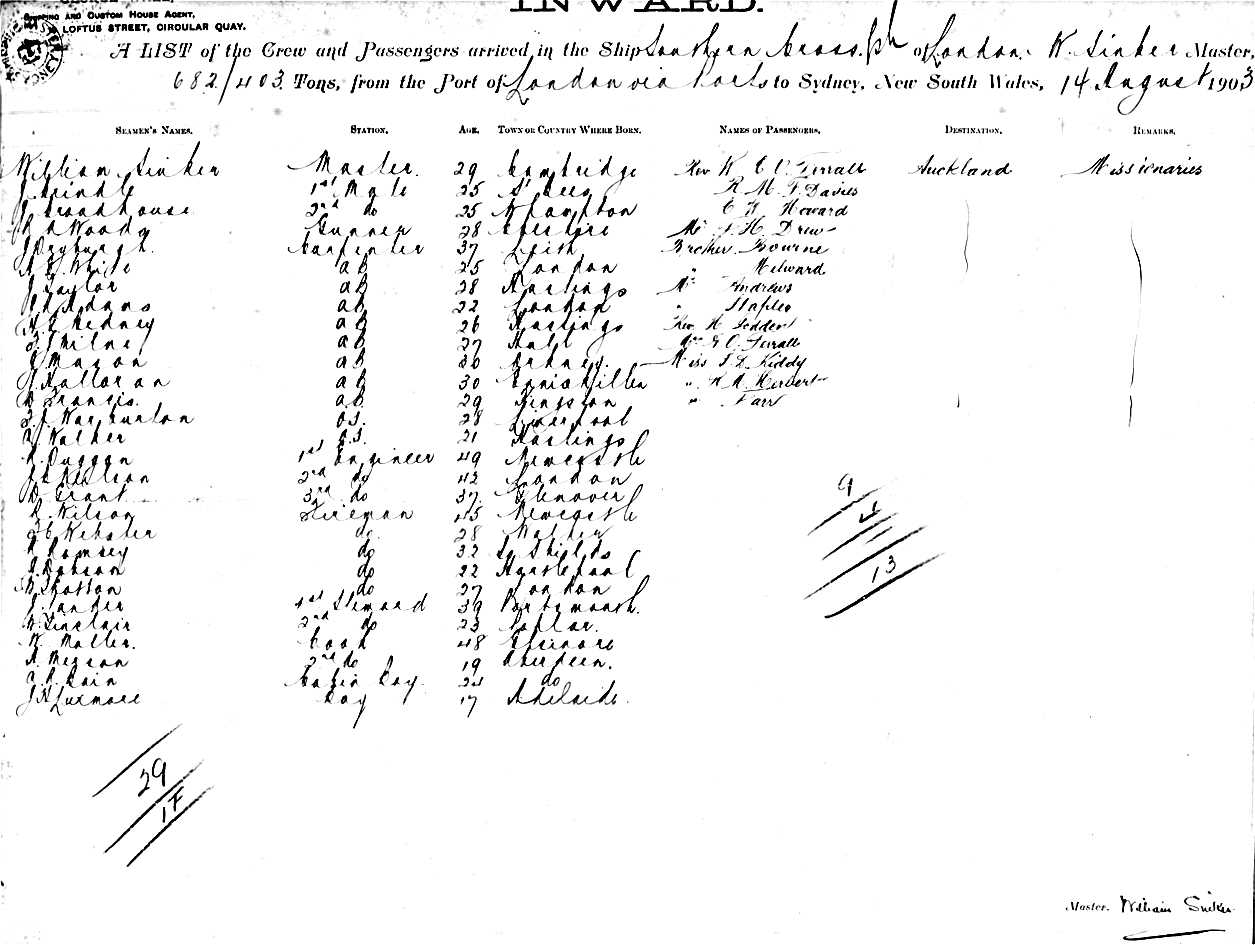 INWARD.
SHIPPING AND CUSTOM HOUSE AGENT,
LOFTUS STREET, CIRCULAR QUAY.
A LIST of the Crew and Passengers arrived in the Ship Southern Cross of London. W. Sinker Master,
682/403 Tons, from the Port of London via Ports to Sydney, New South Wales, 14 August 1903
SEAMEN'S NAMES. STATION. AGE. TOWN OR COUNTRY WHERE BORN. NAMES OF PASSENGERS. DESTINATION. REMARKS.
William Sinker Master. 29 Cambridge Rev W. C. O. Auckland Missionaries
1st Mate 25 St Bees R M F Davies
J Broadhouse 2nd do 25 N'hampton C W Howard
Woody Gunner 28 Cheshire Mr H. Drew
J Dryburgh. Carpenter 37 Leith Brother Bourne
White ab 25 London " Milward
J Taylor ab 28 Hastings Mr Andrews
Adams ab 22 London " Staples
Kedney ab 26 Hastings Rev H
Milne ab 27 Hull
J Mason ab 30 Orkney. Miss Kiddy
J Halloran ab 30 Enniskillen " Hervert
Francis. ab 29 Kingston " Farr
Warburton o.s. 28 Liverpool
Walker o.s. 21 Hastings
Duggan 1st Engineer 49 Newcastle
Neilson 2nd do 42 London
Grant 3rd do 37
Wilson Fireman 45 Newcastle
Webster do 28 Walker
Ramsey do 32 So Shields
Robson do 22 Hartlepool
Shotton do 27 London
J. 1st Steward 39 Portsmouth.
W. Sinclair 2nd do 23 Poplar.
W. Moller. Cook 48 Elsinore
Merson 2nd do 19 Aberdeen.
Cain Cabin Boy. 24 do
J A Luxmore Boy 17 Adelaide.
9
4
13
29
17
Master. William Sinker